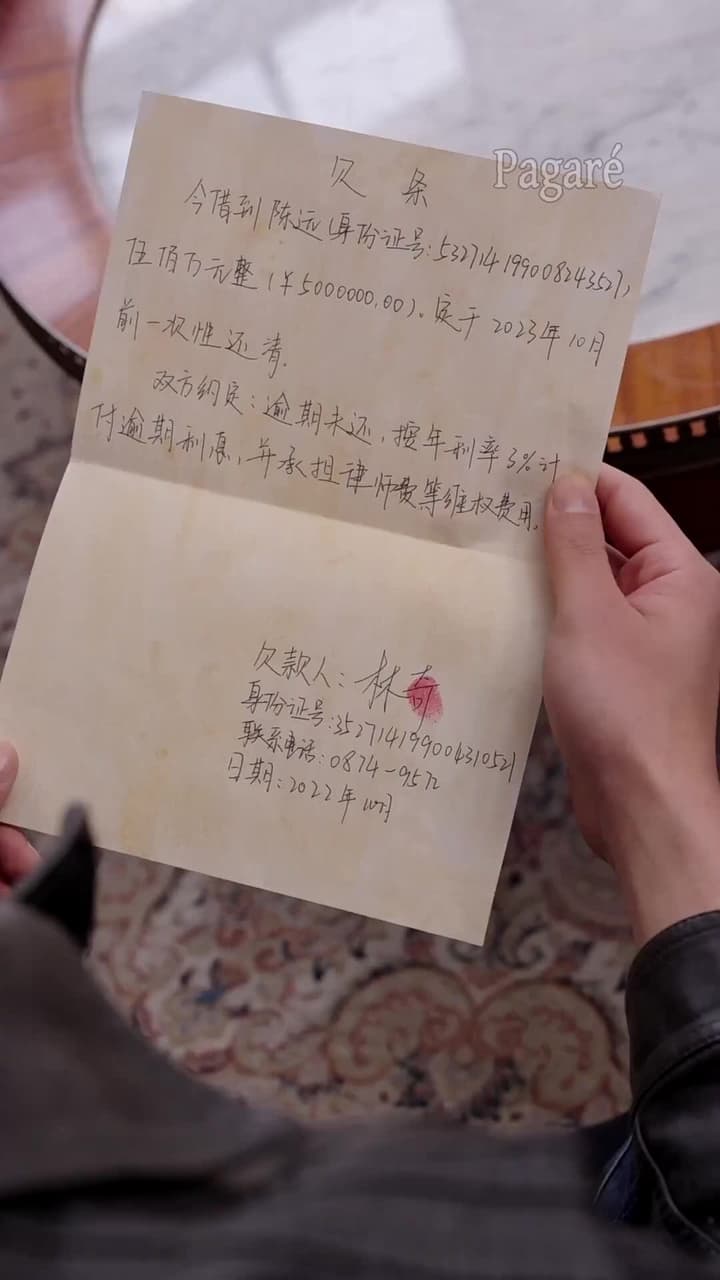 欠条
Pagaré
今借到陈远(身份证号:532714199008243527)
伍佰万元整(¥5000000.00)。定于2023年10月
前一次性还清.
双方约定:逾期未还,按年利率3%计
付逾期利息,并承担律师费等维权费用。
欠款人:林奇
身份证号:352714199004310521
联系电话:0874-9572
日期:2022年10月